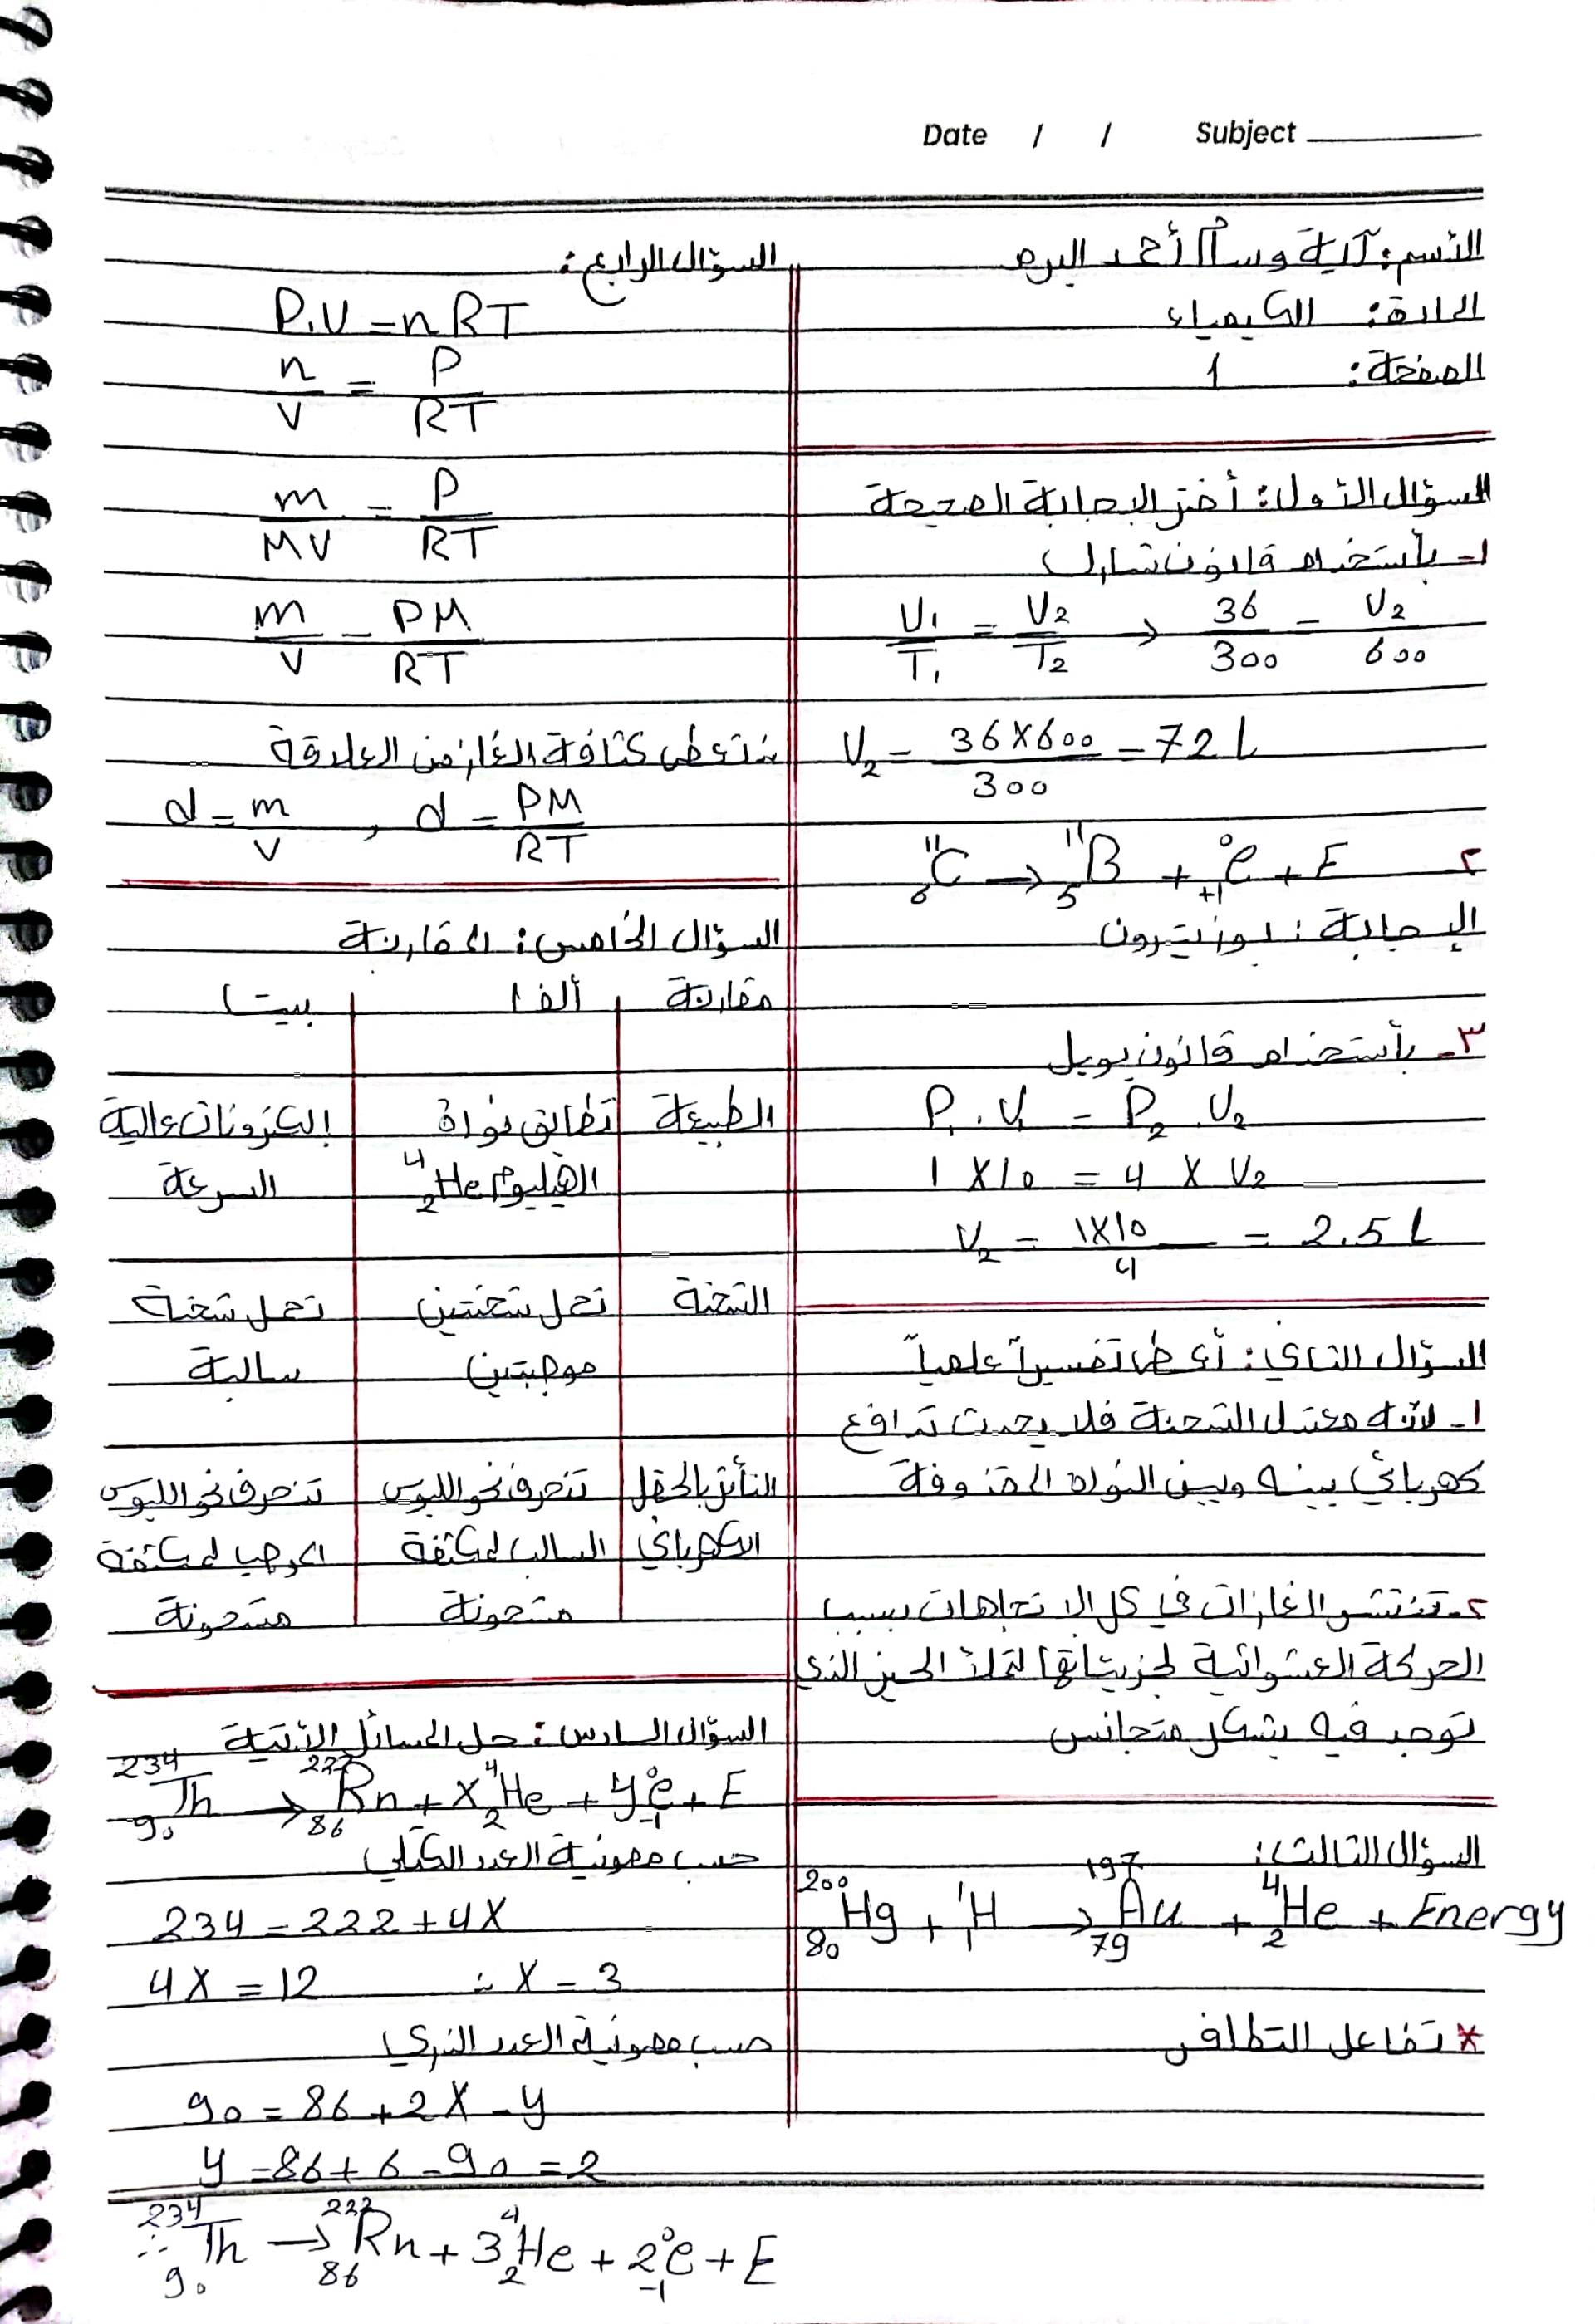 Date / / Subject
الأسم: آية وسام أحمد البرم
المادة: الكيمياء
الصفحة: 1
السؤال الأول: أختر الإجابة الصحيحة
١- بأستخدام قانون شارل
V₁/T₁ = V₂/T₂ → 36/300 = V₂/600
V₂ = 36×600/300 = 72 L
٢- ¹¹₆C → ¹¹₅B + ⁰₊₁e + E
الإجابة: بوزيترون
٣- بأستخدام قانون بويل
P₁.V₁ = P₂.V₂
1 × 10 = 4 × V₂
V₂ = 1×10/4 = 2.5 L
السؤال الثاني: أعط تفسيراً علمياً
١- لأنه معتدل الشحنة فلا يحدث تدافع
كهربائي بينه وبين النواة المقذوفة
٢- تنتشر الغازات في كل الاتجاهات بسبب
الحركة العشوائية لجزيئاتها لتملأ الحيز الذي
توجد فيه بشكل متجانس
السؤال الثالث:
²⁰⁰₈₀Hg + ¹₁H → ¹⁹⁷₇₉Au + ⁴₂He + Energy
* تفاعل التطافر
السؤال الرابع:
P.V = nRT
n/V = P/RT
m/MV = P/RT
m/V = PM/RT
تعطى كثافة الغاز من العلاقة
d = m/V , d = PM/RT
السؤال الخامس: المقارنة
مقارنة ألفا بيتا
الطبيعة تطابق نواة إلكترونات عالية
الهيليوم ⁴₂He السرعة
الشحنة تحمل شحنتين تحمل شحنة
موجبتين سالبة
التأثر بالحقل تنحرف نحو اللبوس تنحرف نحو اللبوس
الكهربائي السالب لمكثفة الموجب لمكثفة
مشحونة مشحونة
السؤال السادس: حل المسائل الآتية
²³⁴₉₀Th → ²²²₈₆Rn + X⁴₂He + y⁰₋₁e + E
حسب مصونية العدد الكتلي
234 = 222 + 4X
4X = 12 ∴ X = 3
حسب مصونية العدد الذري
90 = 86 + 2X - y
y = 86 + 6 - 90 = 2
∴ ²³⁴₉₀Th → ²²²₈₆Rn + 3⁴₂He + 2⁰₋₁e + E